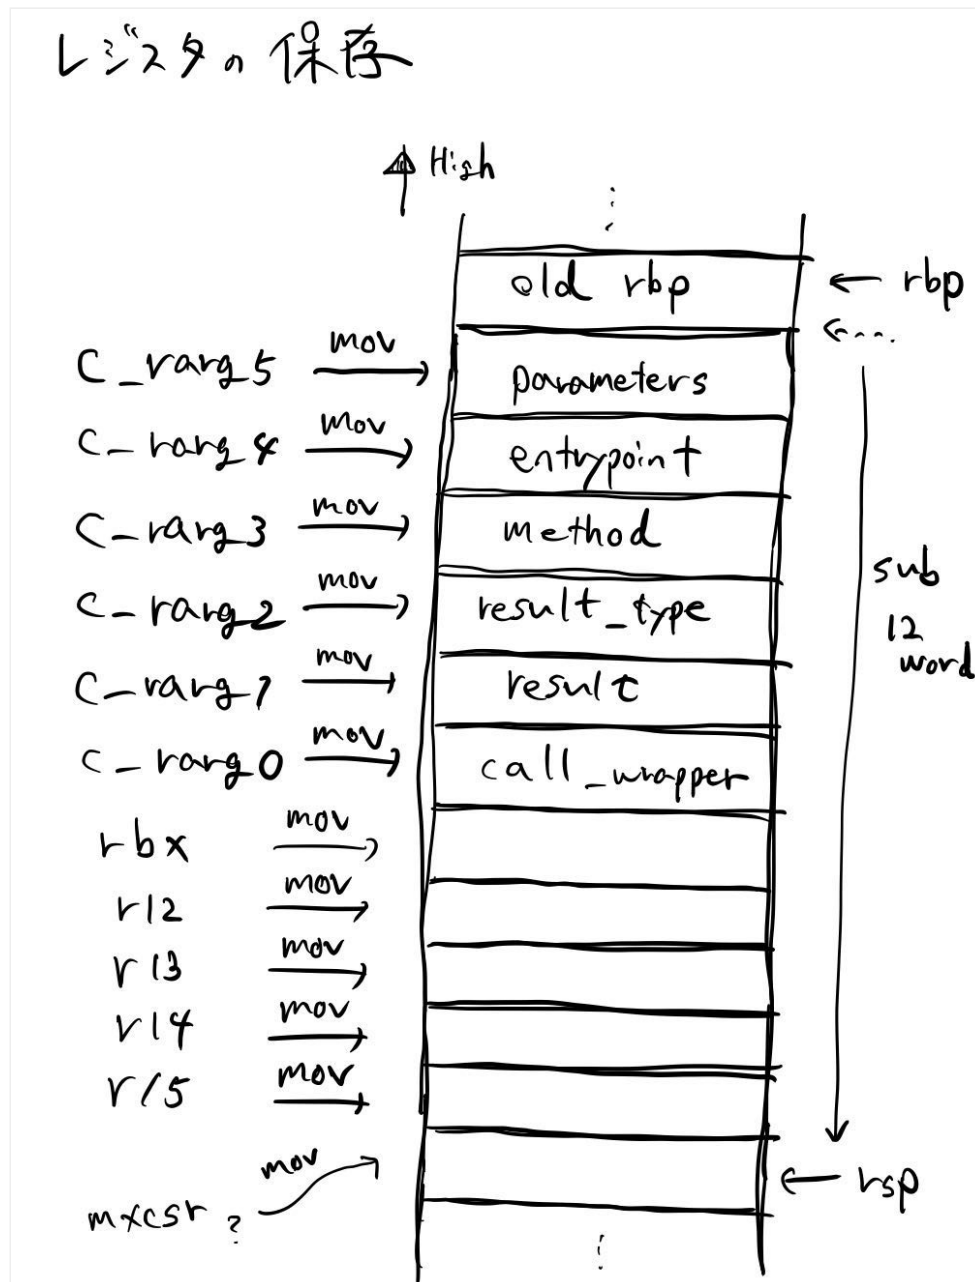 レジスタの保存
High
old rbp ← rbp
C_rarg5 mov → parameters
C_rarg4 mov → entrypoint
C_rarg3 mov → method
C_rarg2 mov → result_type
C_rarg1 mov → result
C_rarg0 mov → call_wrapper
sub
12
word
rbx mov →
r12 mov →
r13 mov →
r14 mov →
r15 mov →
mxcsr ? mov → ← rsp